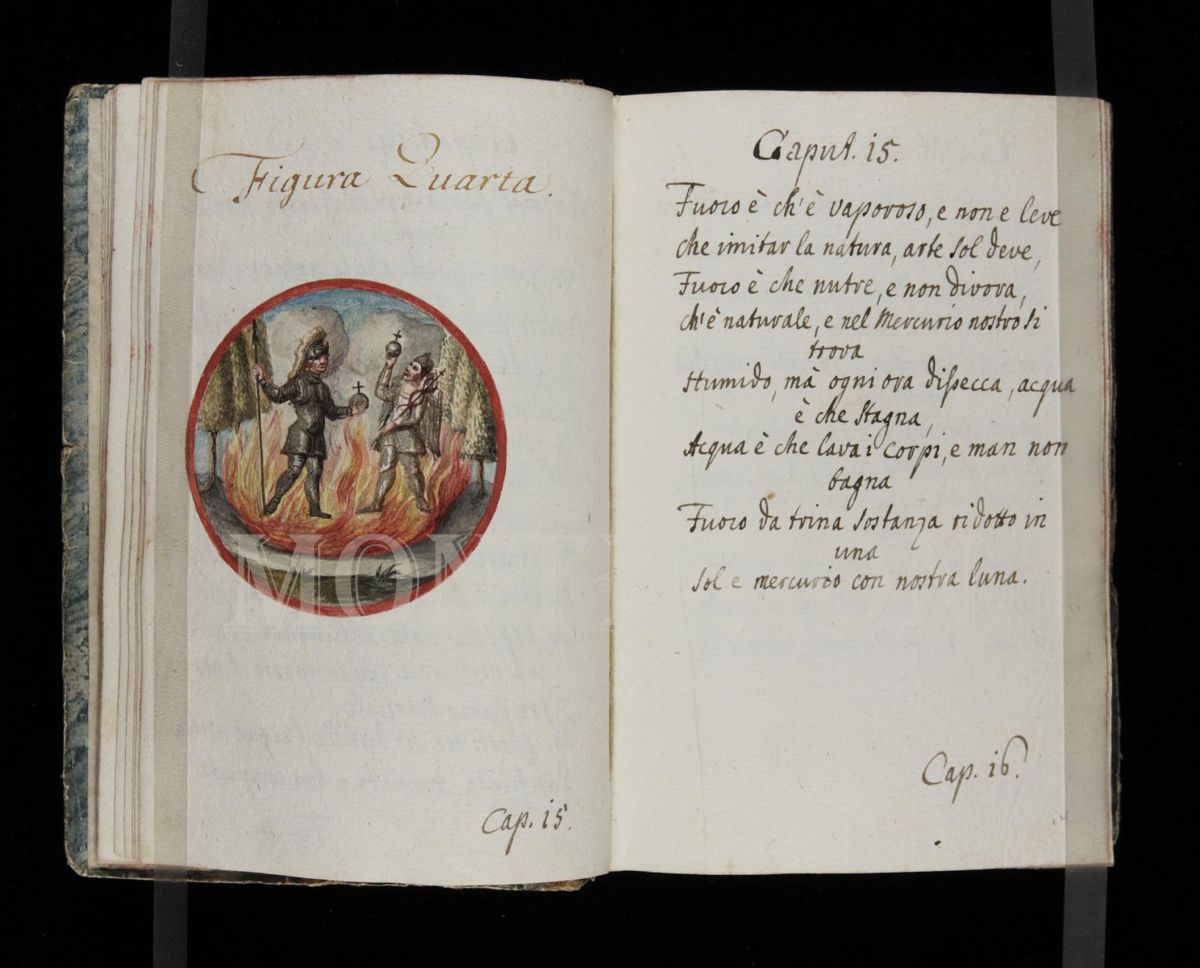 Figura Quarta.
Cap. 15.
Caput. 15.
Fuoco è ch'è vaporoso, e non e leve
che imitar la natura, arte sol deve,
Fuoco è che nutre, e non divora,
ch'è naturale, e nel Mercurio nostro si
trova
Humido, mà ogni ora dissecca, acqua
è che stagna,
Acqua è che lava i corpi, e man non
bagna
Fuoco da trina sostanza ridotto in
una
sol e mercurio con nostra luna.
Cap. 16.